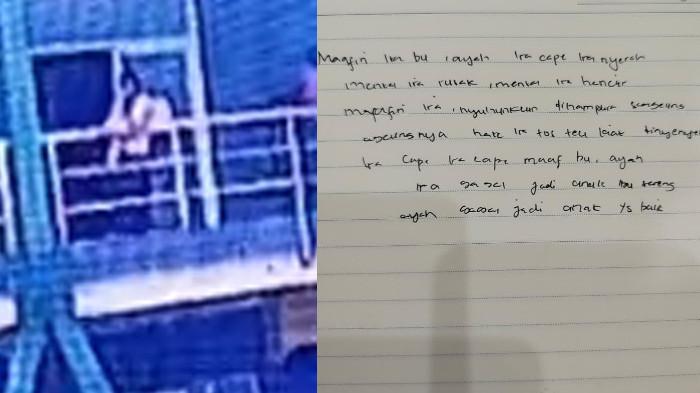 Maafin Ira bu, ayah Ira cape Ira nyerah
mental ira rusak, mental Ira hancur
maafin Ira, nyuhunkeun dihampura
hate Ira tos teu kiat
Ira Cape Ira cape maaf bu, ayah
Ira gagal jadi anak ibu sareng
ayah gagal jadi anak yg baik